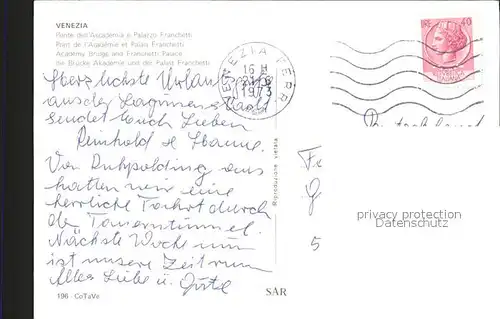 VENEZIA
Ponte dell'Accademia e Palazzo Franchetti
Pont de l'Académie et Palais Franchetti
Academy Bridge and Franchetti Palace
die Brücke Akademie und der Palast Franchetti
VENEZIA FERR
16 H
1973
40
Herzlichste Urlaubs
aus der Lagunenstadt
sendet Euch Lieben
Reinhold u.
Von Ruhpolding aus
hatten wir eine
herrliche Fahrt durch
den Tauerntunnel.
Nächste Woche nun
ist unsere Zeit rum
Alles Liebe u. Gute
Riproduzione vietata
Fr
G
5
privacy protection
Datenschutz
196 - CoTaVe
SAR